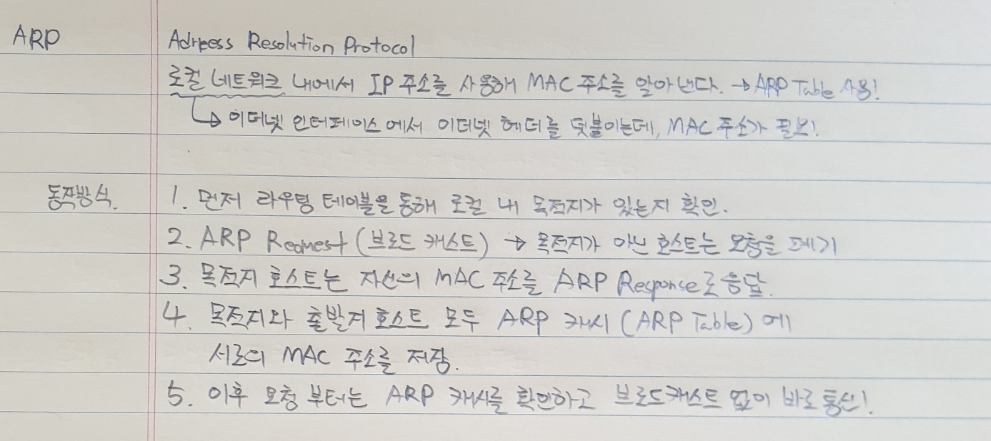 ARP Adrress Resolution Protocol
로컬 네트워크 내에서 IP 주소를 사용해 MAC 주소를 알아낸다. → ARP Table 사용!
↳ 이더넷 인터페이스에서 이더넷 헤더를 덧붙이는데, MAC 주소가 필요!
동작방식. 1. 먼저 라우팅 테이블을 통해 로컬 내 목적지가 있는지 확인.
2. ARP Request (브로드 캐스트) → 목적지가 아닌 호스트는 요청을 폐기
3. 목적지 호스트는 자신의 MAC 주소를 ARP Response로 응답.
4. 목적지와 출발지 호스트 모두 ARP 캐시 (ARP Table) 에
서로의 MAC 주소를 저장.
5. 이후 요청 부터는 ARP 캐시를 확인하고 브로드캐스트 없이 바로 통신!